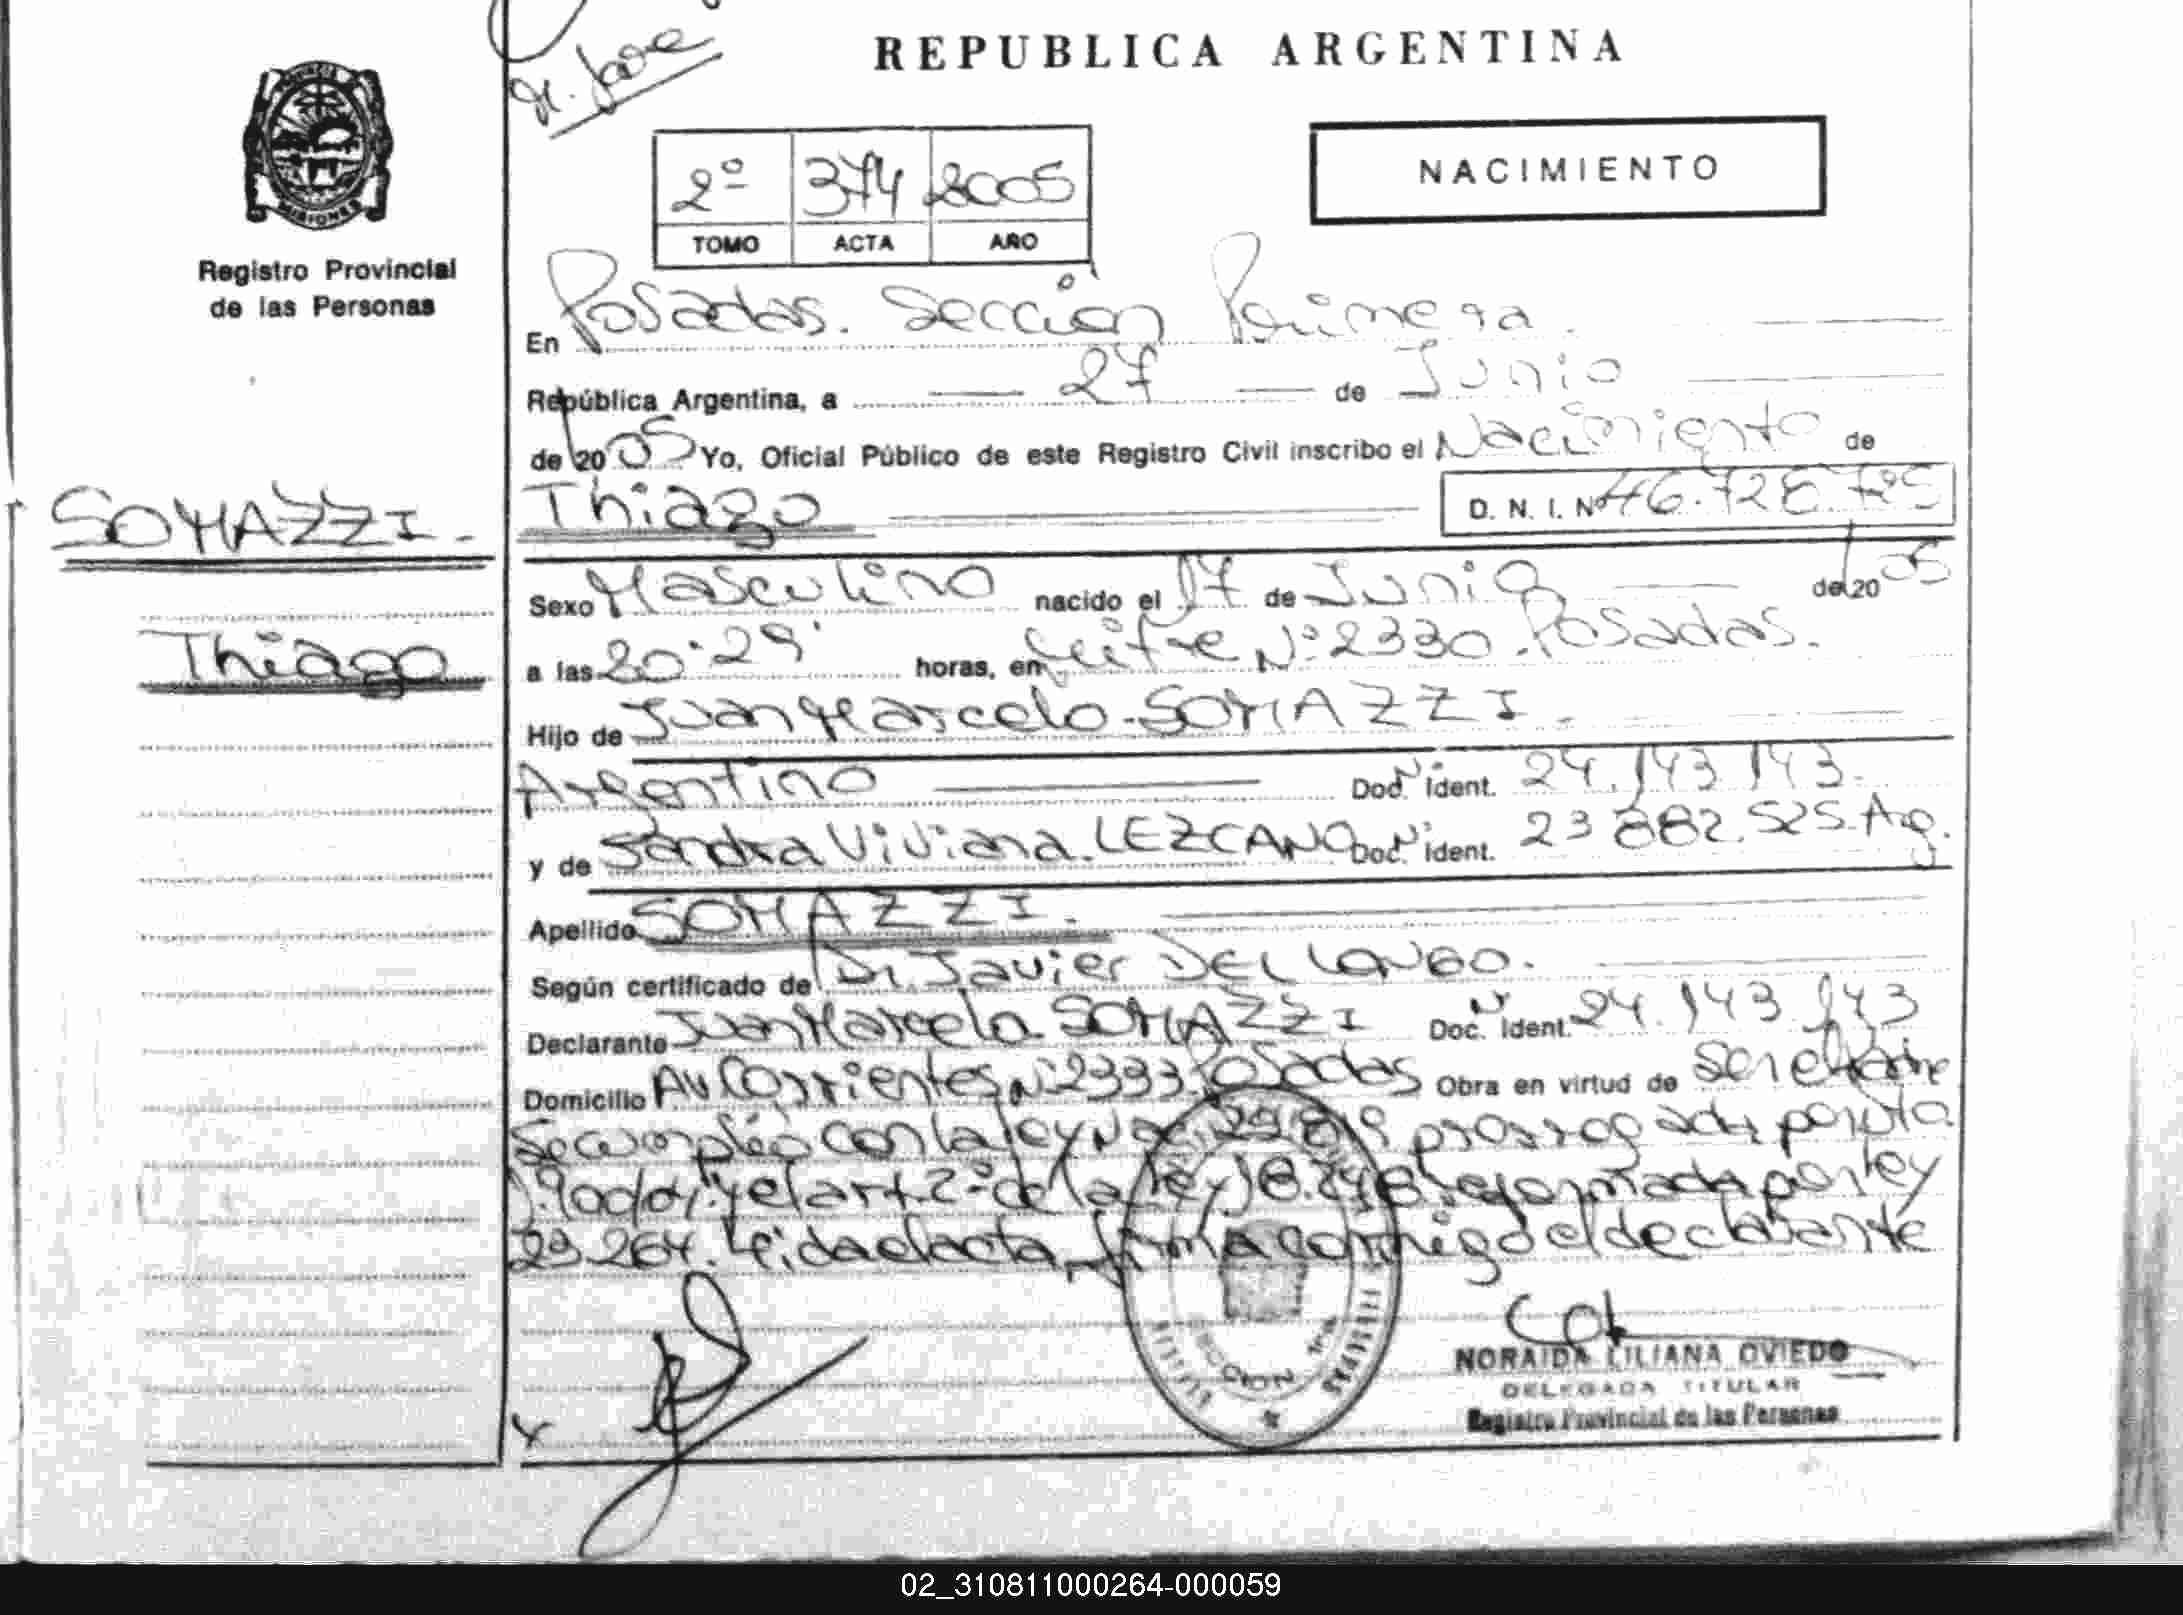 REPUBLICA ARGENTINA
MISIONES
Registro Provincial
de las Personas
2º 374 2005
TOMO ACTA AÑO
NACIMIENTO
En Posadas. Sección Primera.
República Argentina, a 27 de Junio
de 2005 Yo, Oficial Público de este Registro Civil inscribo el Nacimiento de
SOMAZZI.
Thiago D. N. I. Nº 46.728.725
Sexo Masculino nacido el 17 de Junio de 2005
Thiago
a las 20:29' horas, en Nº 2330. Posadas.
Hijo de Juan Marcelo SOMAZZI.
Argentino Doc. Nº ident. 24.143.143.
y de Sandra Viviana LEZCANO Doc. Nº ident. 23 882.525 Arg.
Apellido SOMAZZI.
Según certificado de Dr Javier DEL LONGO.
Declarante Juan Marcelo SOMAZZI Doc. Nº ident. 24.143.143
Domicilio Av Corrientes Nº 2333 Posadas Obra en virtud de Ser el Padre
Se cumplió con la ley prorrogada por
y el art 2º de la ley 18.248 reformada por ley
23.264. Leida el acta, firma conmigo el declarante
NORAIDA LILIANA OVIEDO
DELEGADA TITULAR
Registro Provincial de las Personas
02_310811000264-000059